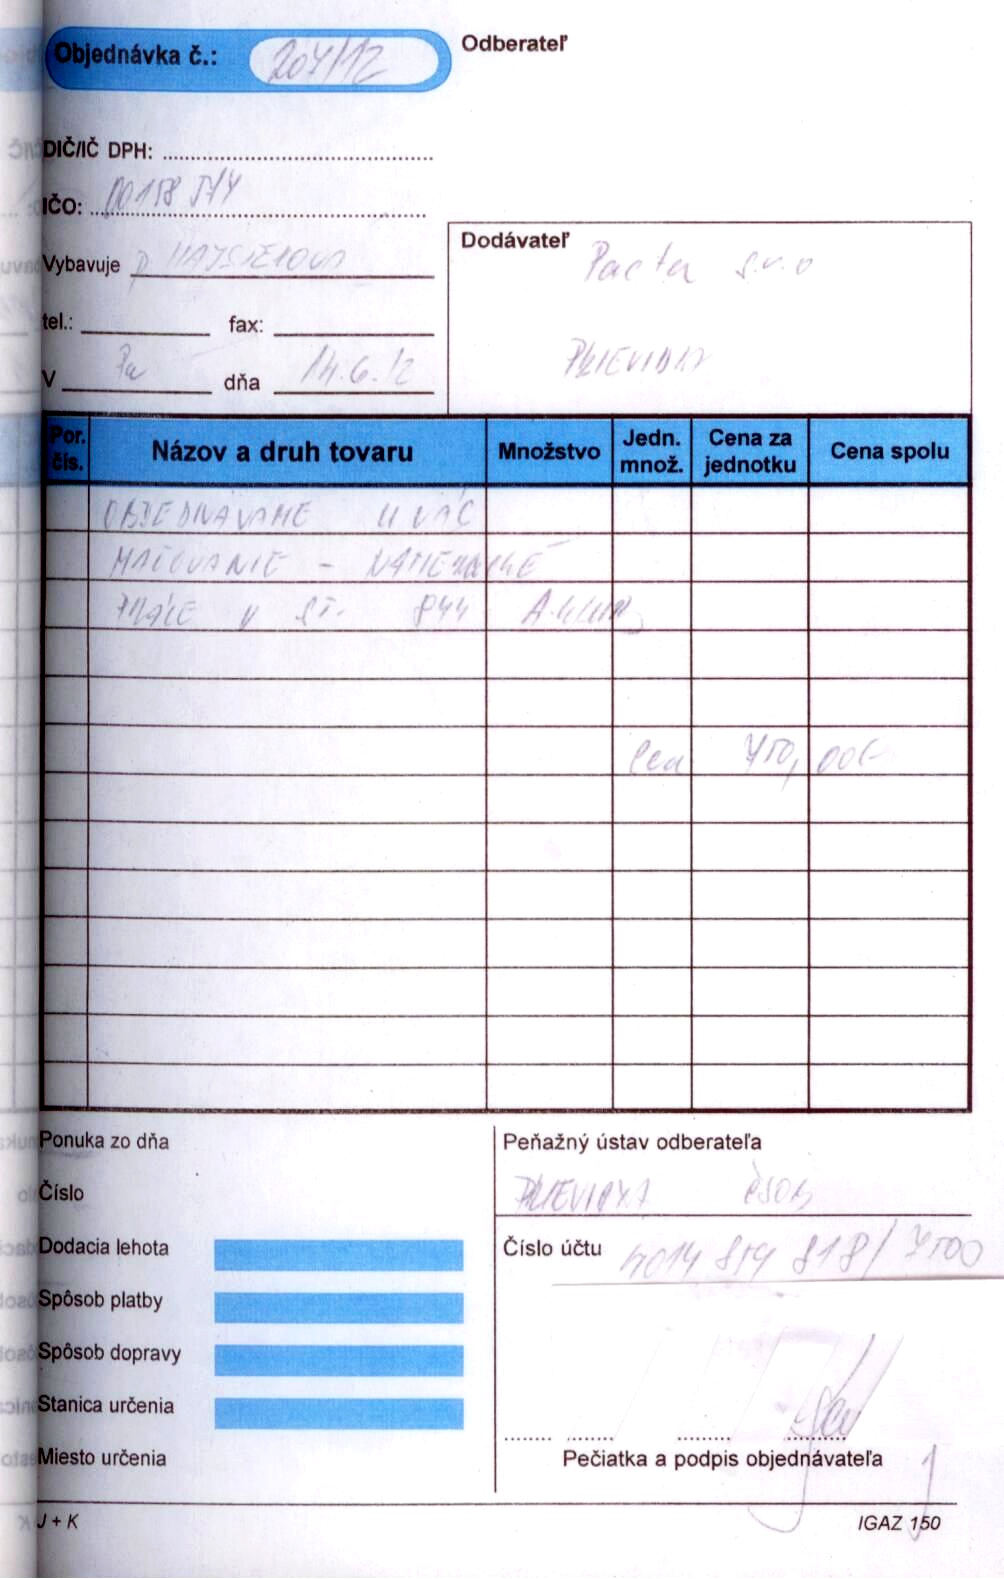 Objednávka č.: 204/12
Odberateľ
DIČ/IČ DPH:
IČO: 00158
Vybavuje p.
tel.: fax:
V Pu dňa 14.6.12
Dodávateľ
Pacta s.r.o
PRIEVIDZA
Por. čís.
Názov a druh tovaru
Množstvo
Jedn. množ.
Cena za jednotku
Cena spolu
OBJEDNÁVAME U VÁS
MAĽOVANIE - NATIERAČSKÉ
PRÁCE V 844
750,00€
Ponuka zo dňa
Číslo
Dodacia lehota
Spôsob platby
Spôsob dopravy
Stanica určenia
Miesto určenia
Peňažný ústav odberateľa
PRIEVIDZA ČSOB
Číslo účtu 818/7500
Pečiatka a podpis objednávateľa
J + K
IGAZ 150